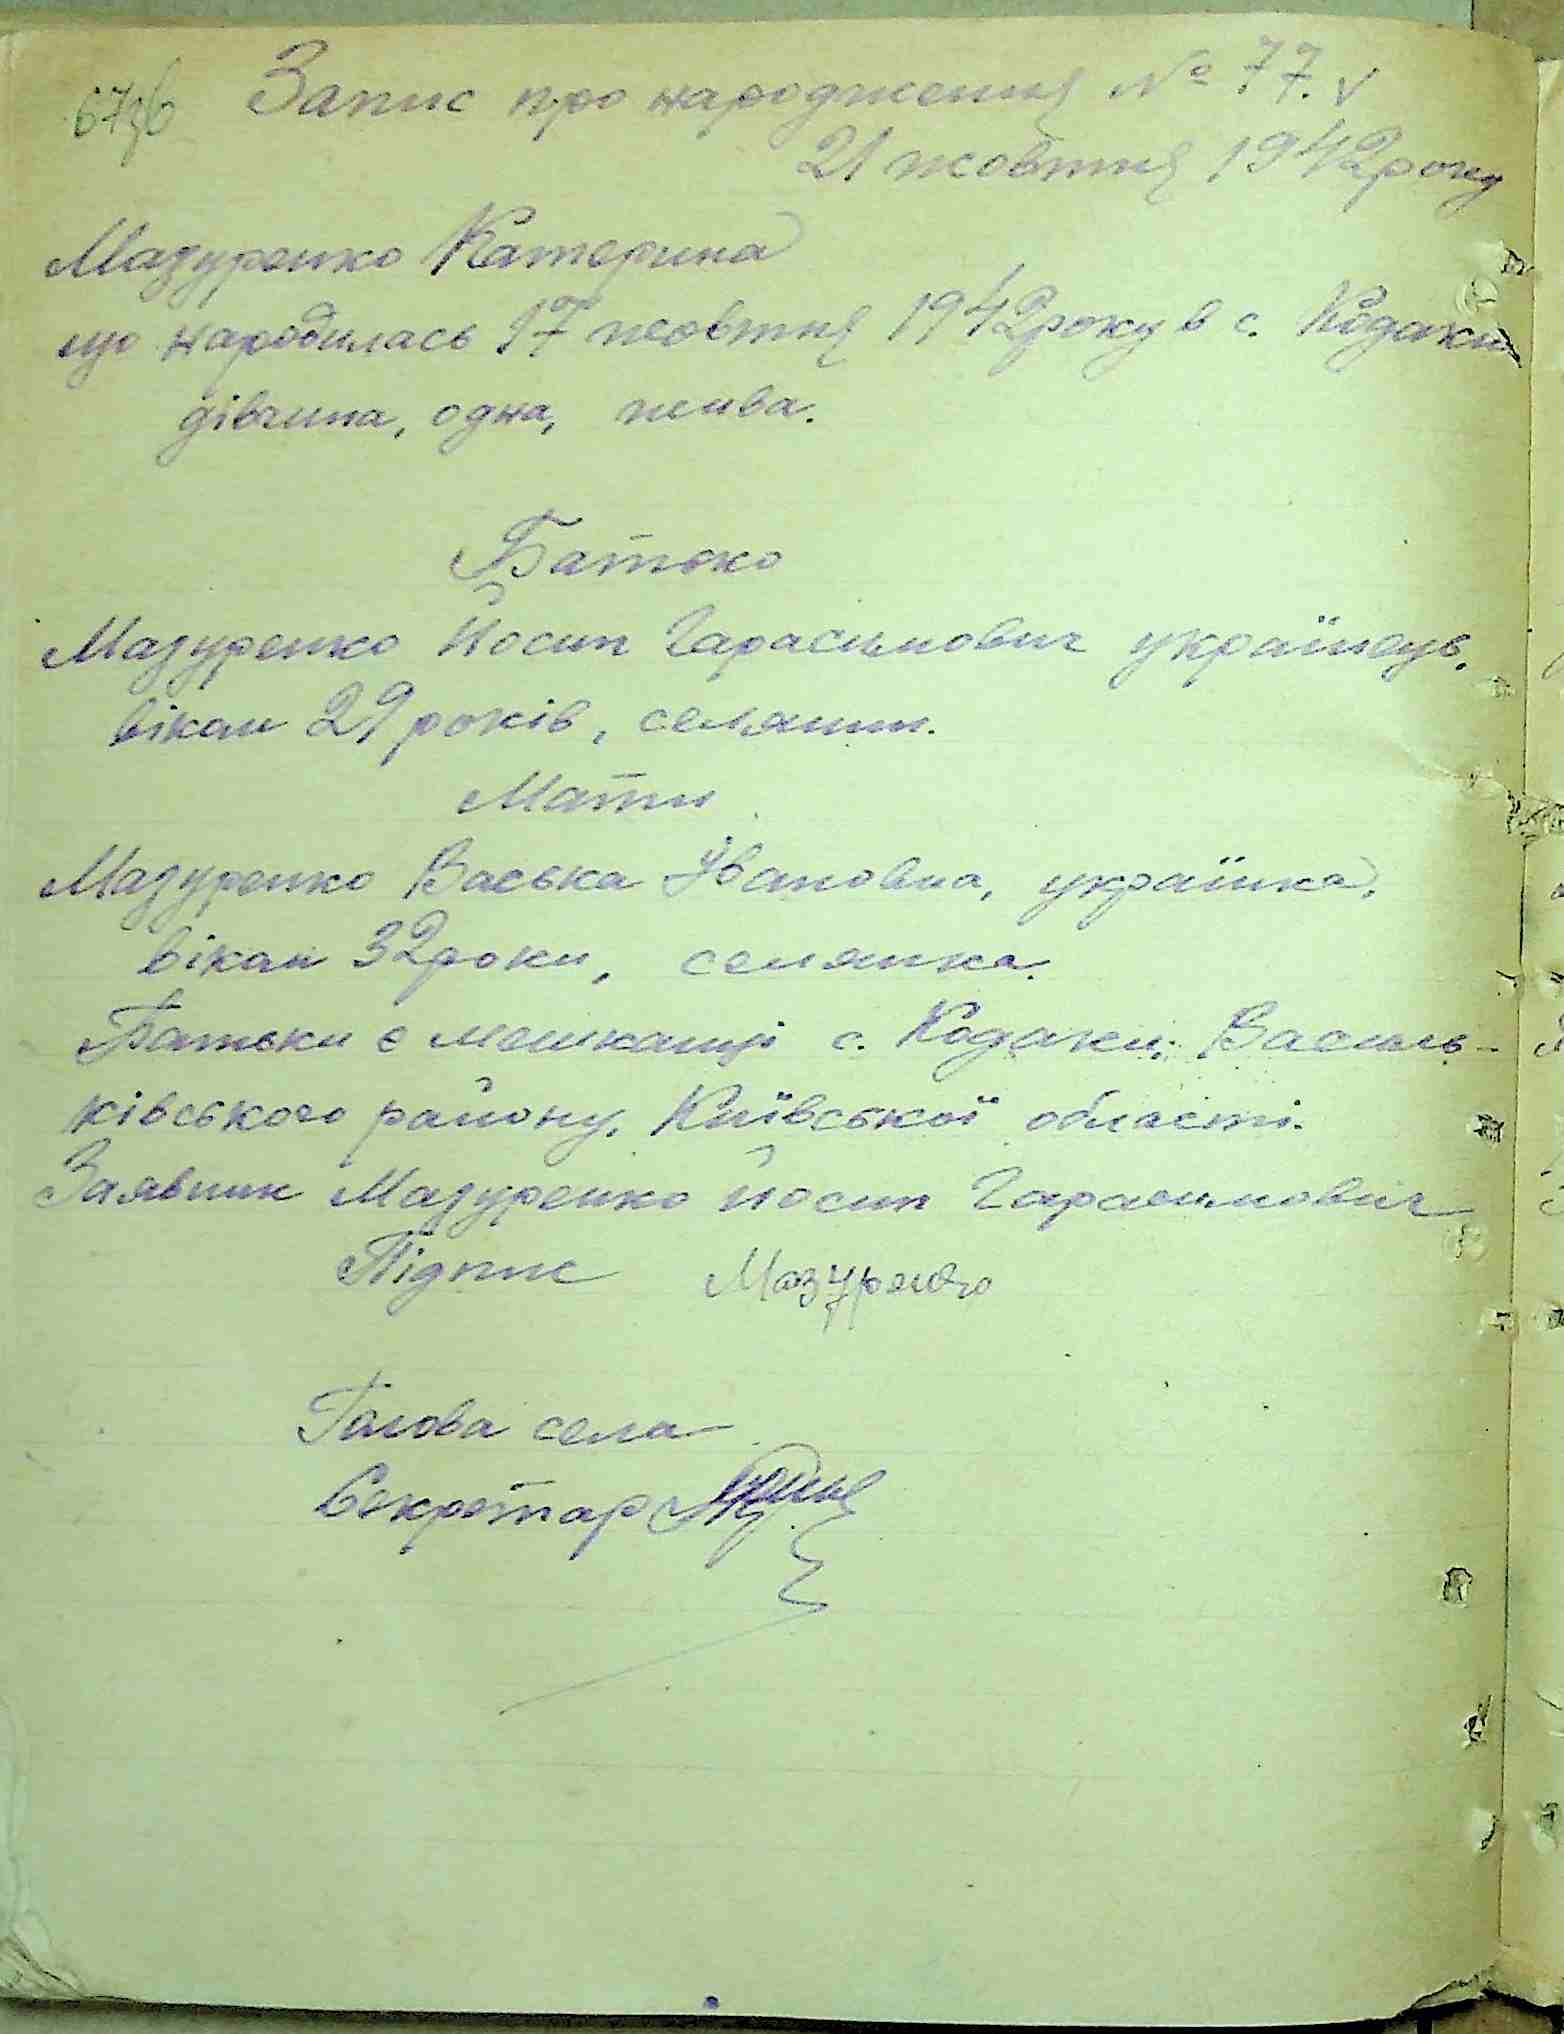 67зв Запис про народження № 77. v
21 жовтня 1942 року
Мазуренко Катерина
що народилась 17 жовтня 1942 року в с. Кодаки
дівчина, одна, жива.
Батько
Мазуренко Йосип Гарасимович українець,
віком 29 років, селянин.
Мати
Мазуренко Васька Івановна, українка,
віком 32 роки, селянка.
Батьки є мешканці с. Кодаки, Василь-
ківського району, Київської області.
Заявник Мазуренко Йосип Гарасимович
Підпис Мазуренко
Голова села
Секретар